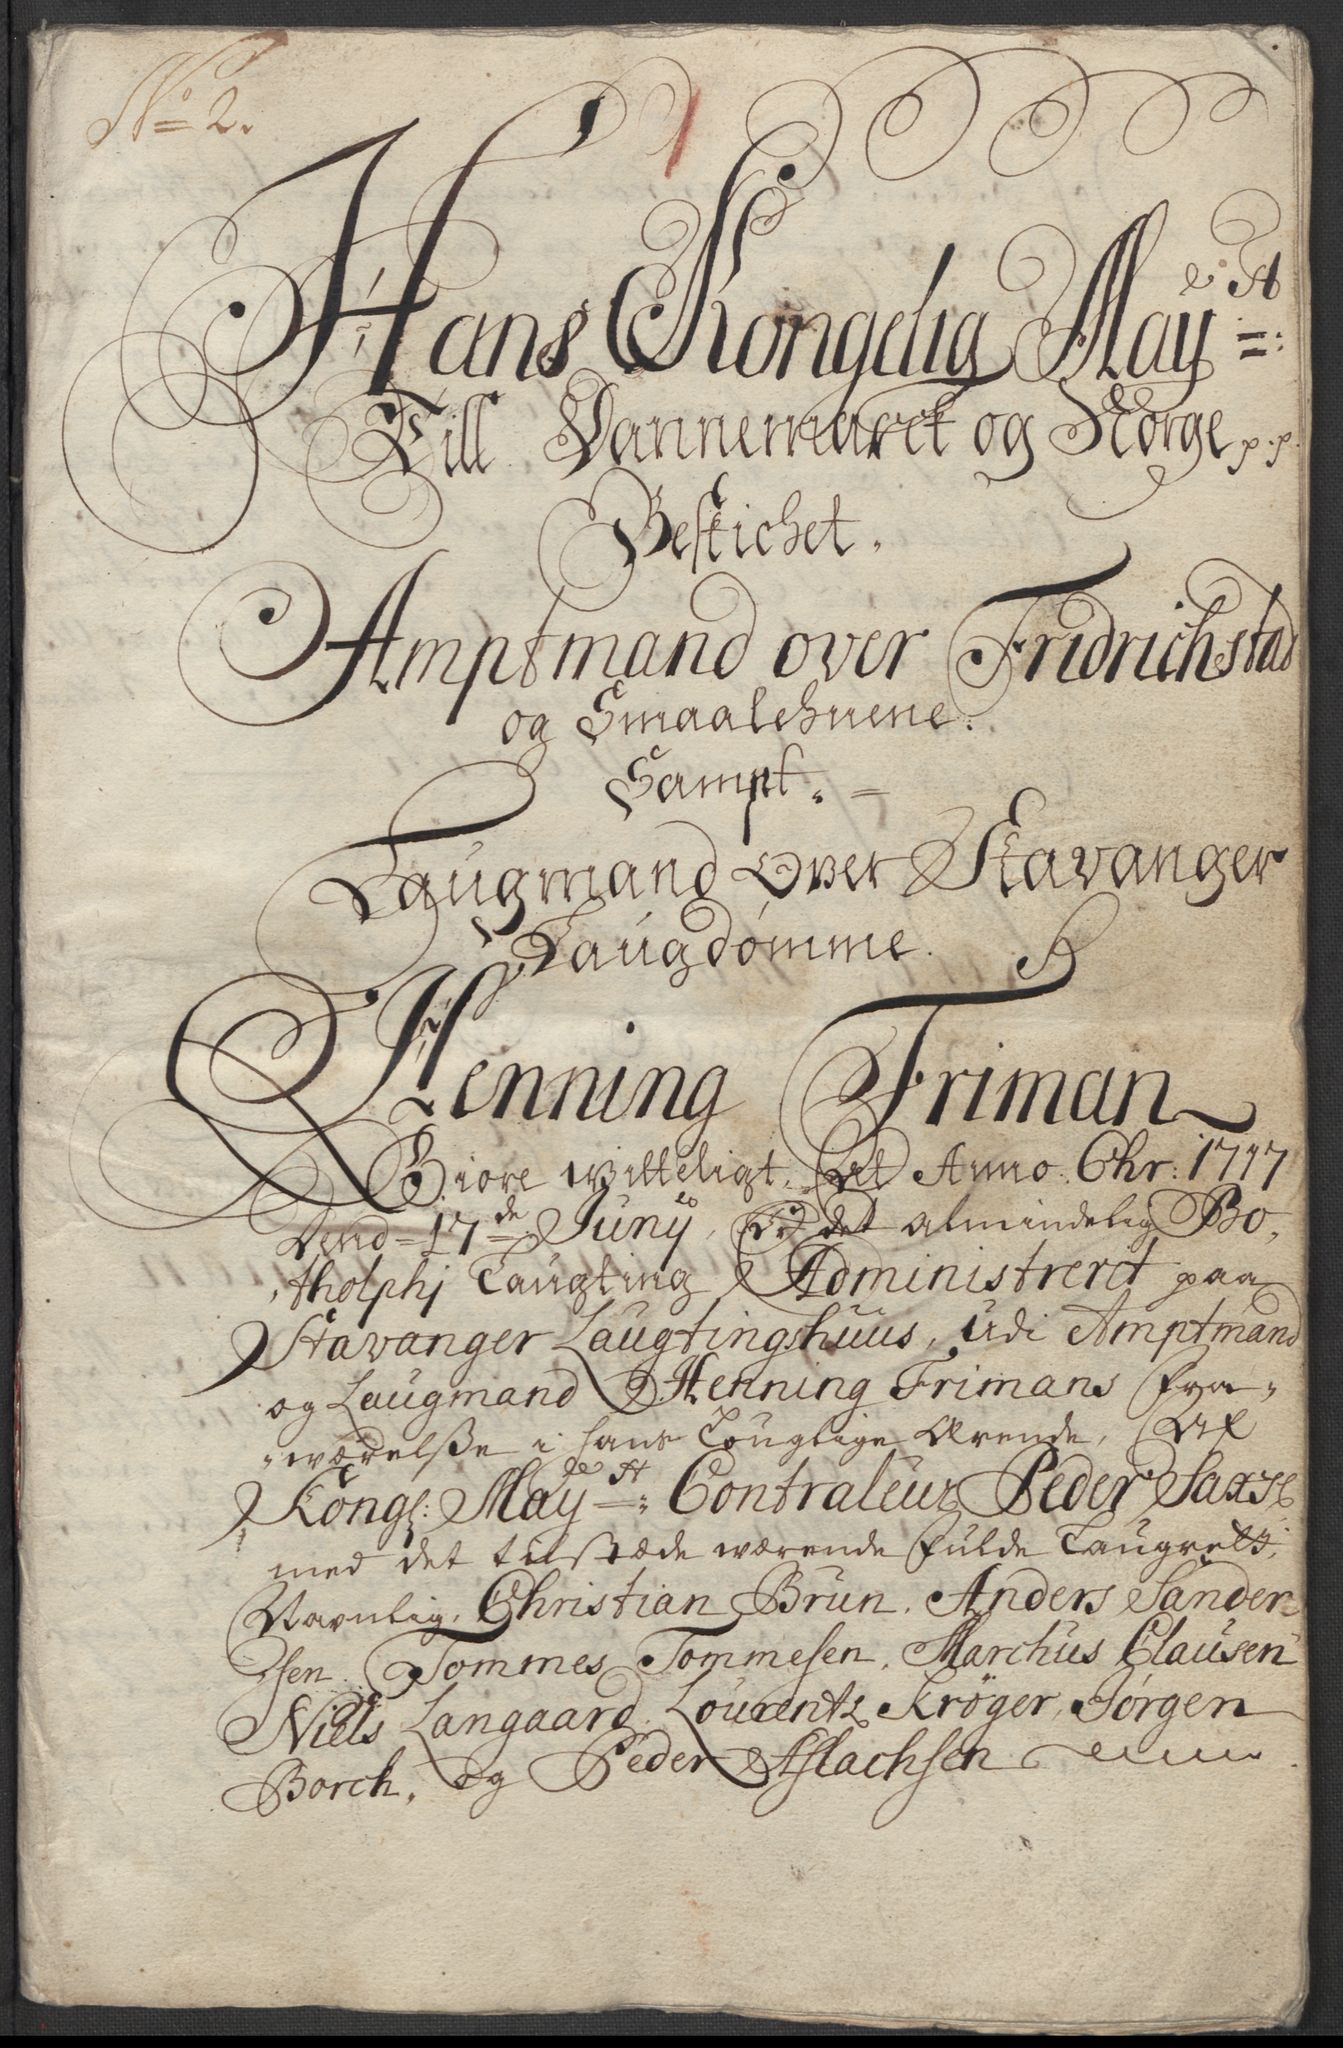 No 2.
Hans Kongelig Maÿ:tt
Till Dannemarck og Norge p. p.
Bestichet.
Amptmand over Fridrichstad
og Smaalehnene.
Sampt.
Laugmand Over Stavanger
Laugdømme.
Henning Friman
Giøre Witteligt, At Anno Chr: 1717
Dend 17de Junÿ, Ved det almindelig Bo,
,tholphj Laugting Administreret paa
Stavanger Laugtingshuus, udi Amptmand
og Laugmand Henning Frimans Fra,
,værelsse i hans Louglige Ærende, Af
Kongl: Maÿtt: Contraleur Peder Saxse
med det tilstæde værende fulde Laugrett,
Navnlig, Christian Brun, Anders Sander
sen, Tommes Tommesen, Marchus Clausen
Niels Langaard, Lourentz Krøger, Jørgen
Borch, og Peder Aslachsen